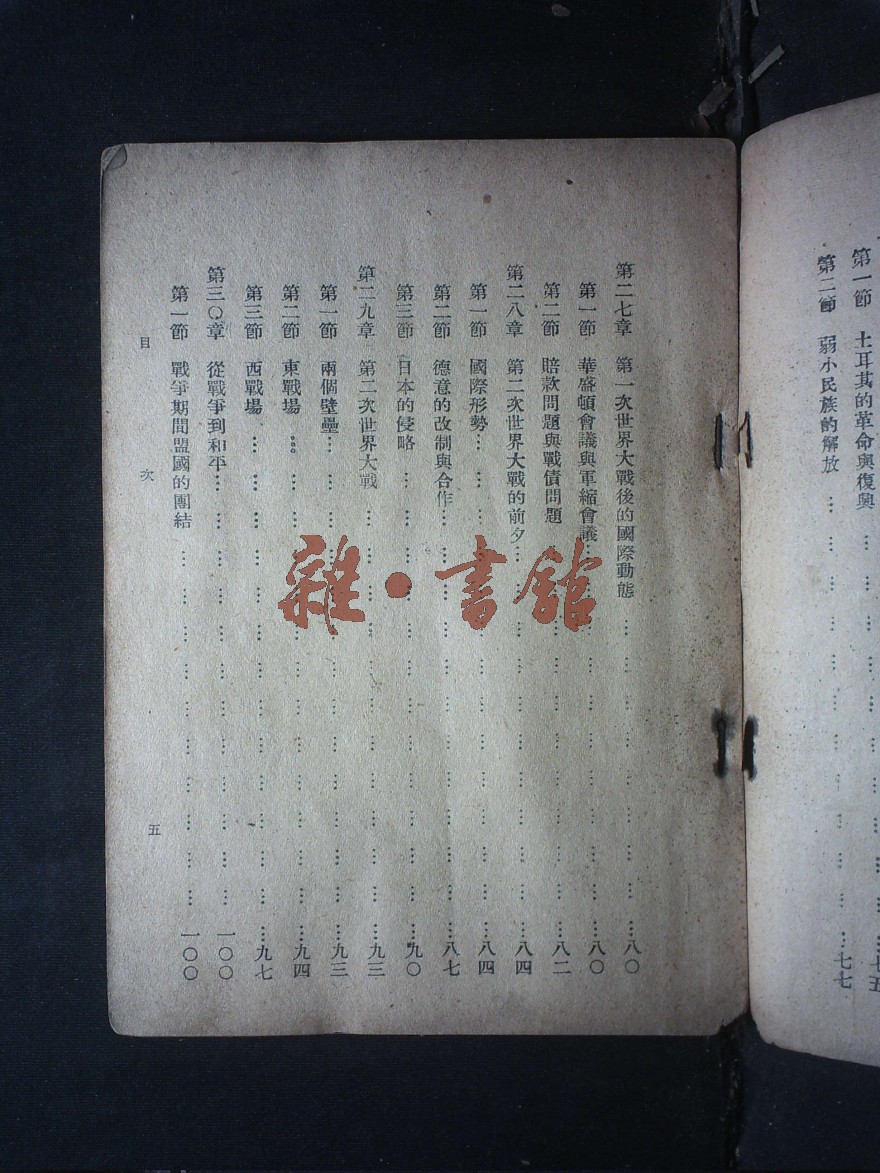 第一節　土耳其的革命與復興……七五
第二節　弱小民族的解放……七七
第二七章　第一次世界大戰後的國際動態……八〇
第一節　華盛頓會議與軍縮會議……八〇
第二節　賠款問題與戰債問題……八二
第二八章　第二次世界大戰的前夕……八四
第一節　國際形勢……八四
第二節　德意的改制與合作……八七
第三節　日本的侵略……九〇
第二九章　第二次世界大戰……九三
第一節　兩個壁壘……九三
第二節　東戰場……九四
第三節　西戰場……九七
第三〇章　從戰爭到和平……一〇〇
第一節　戰爭期間盟國的團結……一〇〇
目次　五
雜·書館